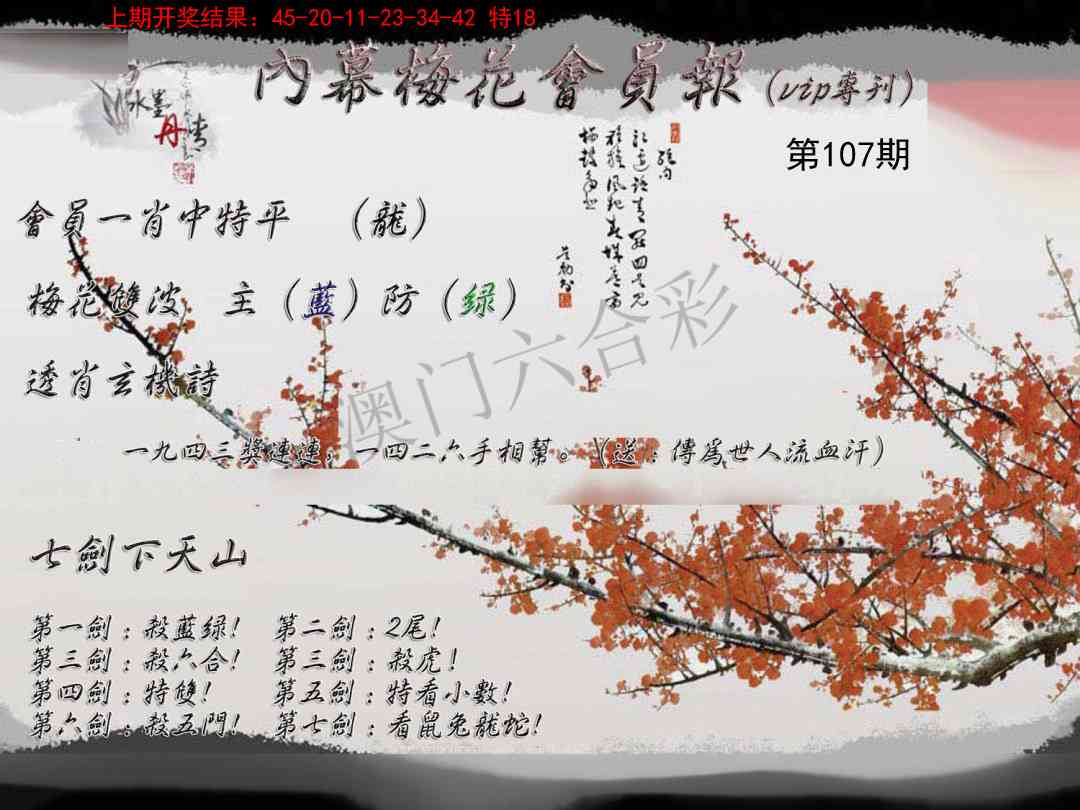 上期开奖结果：45-20-11-23-34-42 特18
內幕梅花會員報（vip專刊）
水墨
丹情
第107期
會員一肖中特平 （龍）
梅花雙波 主（藍）防（绿）
透肖玄機詩
澳门六合彩
一九四三獎連連，一四二六手相幫。（送：傳爲世人流血汗）
七劍下天山
第一劍：殺藍绿！ 第二劍：2尾！
第三劍：殺六合！ 第三劍：殺虎！
第四劍：特雙！ 第五劍：特看小數！
第六劍：殺五門！ 第七劍：看鼠兔龍蛇！